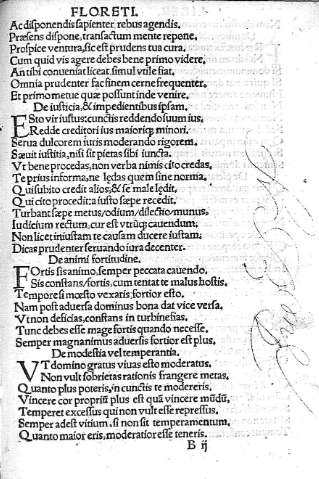 FLORETI.
Ac disponendis sapienter rebus agendis.
Præsens dispone, transactum mente repone,
Prospice ventura, sic est prudens tua cura,
Cum quid vis agere debes bene primo videre,
An tibi conueniat liceat simul vtile fiat,
Omnia prudenter fac finem cerne frequenter,
Et primo metue quæ possunt inde venire.
De iusticia, & impedientibus ipsam.
Esto vir iustus: cunctis reddendo suum ius,
Redde creditori ius maioriq; minori.
Serua dulcorem iuris moderando rigorem.
Sæuit iustitia, nisi sit pietas sibi iuncta.
Vt bene procedas, non verba nimis cito credas,
Te prius informa, ne lędas quem sine norma.
Qui subito credit alios, & se male lędit,
Qui cito procedit: a iusto sæpe recedit.
Turbant sæpe metus / odium / dilectio / munus,
Iudicium rectum, cur est vtrūq; cauendum.
Non licet iniustam te causam ducere iustam:
Dicas prudenter seruando iura decenter.
De animi fortitudine.
Fortis sis animo, semper peccata cauendo.
Sis constans / fortis, cum tentat te malus hostis,
Tempore si mœsto vexatis, fortior esto,
Nam post aduersa dominus bona dat vice versa.
Vt non deficias, constans in turbine fias,
Tunc debes esse mage fortis quando necesse,
Semper magnanimus aduersis fortior est plus.
De modestia vel temperantia.
VT domino gratus viuas esto moderatus,
Non vult sobrietas rationis frangere metas,
Quanto plus poteris, in cunctis te modereris.
Vincere cor propriū plus est quā vincere mūdū,
Temperet excessus qui non vult esse repressus,
Semper adest vitium, si non sit temperamentum,
Quanto maior eris, moderatior esse teneris.
B ij